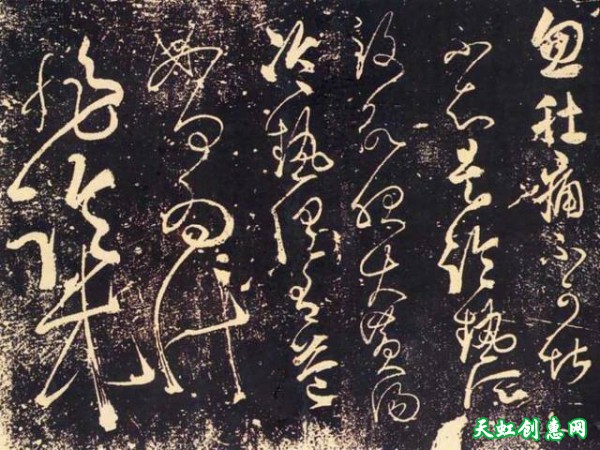 忽肚痛不可堪
不知是冷熱所
致欲服大黃湯
冷熱俱有益
如何為計
非臨床
天虹创惠网